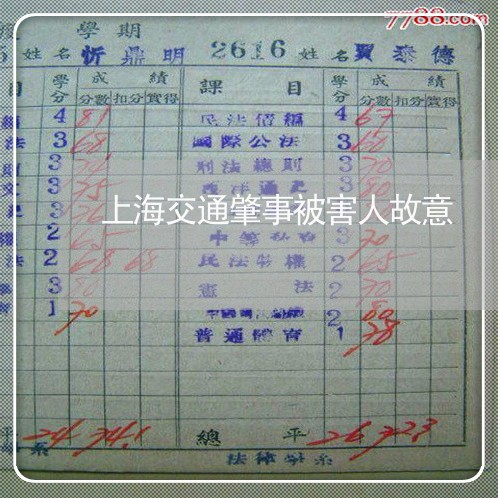 7788.com
學期
姓名 忻鼎明 2616 姓名 賈泰德
目 學分 成績 課目 學分 成績
分數 扣分 實得 分數 扣分 實得
編 4 81 民法債編 4 67
法 3 68 國際公法 3 60
3 刑法總則 3 70
3 75 西洋通史 3 80
上海交通肇事被害人故意
權 2 65 3 70
法 2 68 68 民法物權 2 65
3 80 憲法 2 70
育 1 70 2 80
普通體育 1 78
平 24 74.1 總平 26 72.3
系 法律學系